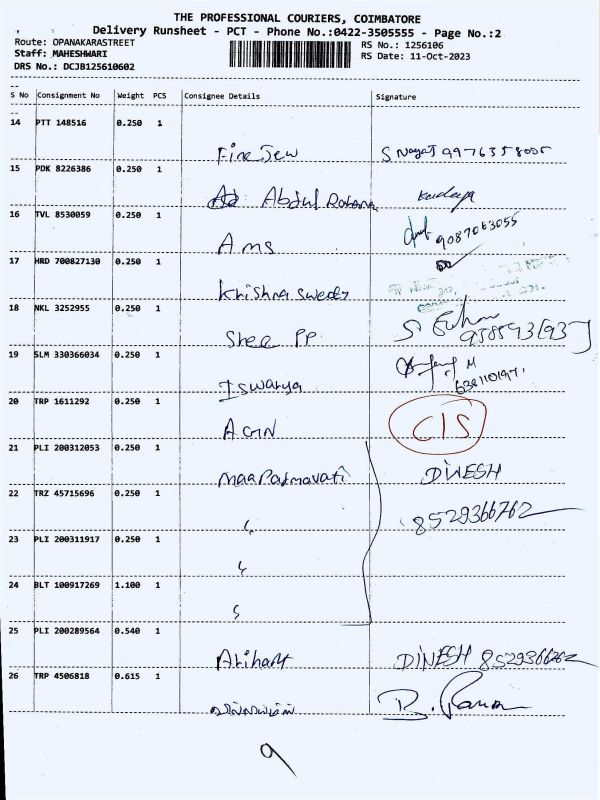 THE PROFESSIONAL COURIERS, COIMBATORE
Delivery Runsheet - PCT - Phone No.:0422-3505555 - Page No.:2
Route: OPANAKARASTREET
Staff: MAHESHWARI
DRS No.: DCJB125610602
RS No.: 1256106
RS Date: 11-Oct-2023
S No Consignment No Weight PCS Consignee Details Signature
14 PTT 148516 0.250 1
Fine Jew S Nagat 9976358005
15 PDK 8226386 0.250 1
Abdul
16 TVL 8530059 0.250 1
Ams 9087063055
17 HRD 700827130 0.250 1
Krishna Sweets
18 NKL 3252955 0.250 1
Shee PP S
19 SLM 330366034 0.250 1
Iswarya
20 TRP 1611292 0.250 1
AGN CIS
21 PLI 200312053 0.250 1
Maa Padmavati DINESH
22 TRZ 45715696 0.250 1
8529366762
23 PLI 200311917 0.250 1
24 BLT 100917269 1.100 1
25 PLI 200289564 0.540 1
Arihant DINESH 8529366762
26 TRP 4506818 0.615 1
9